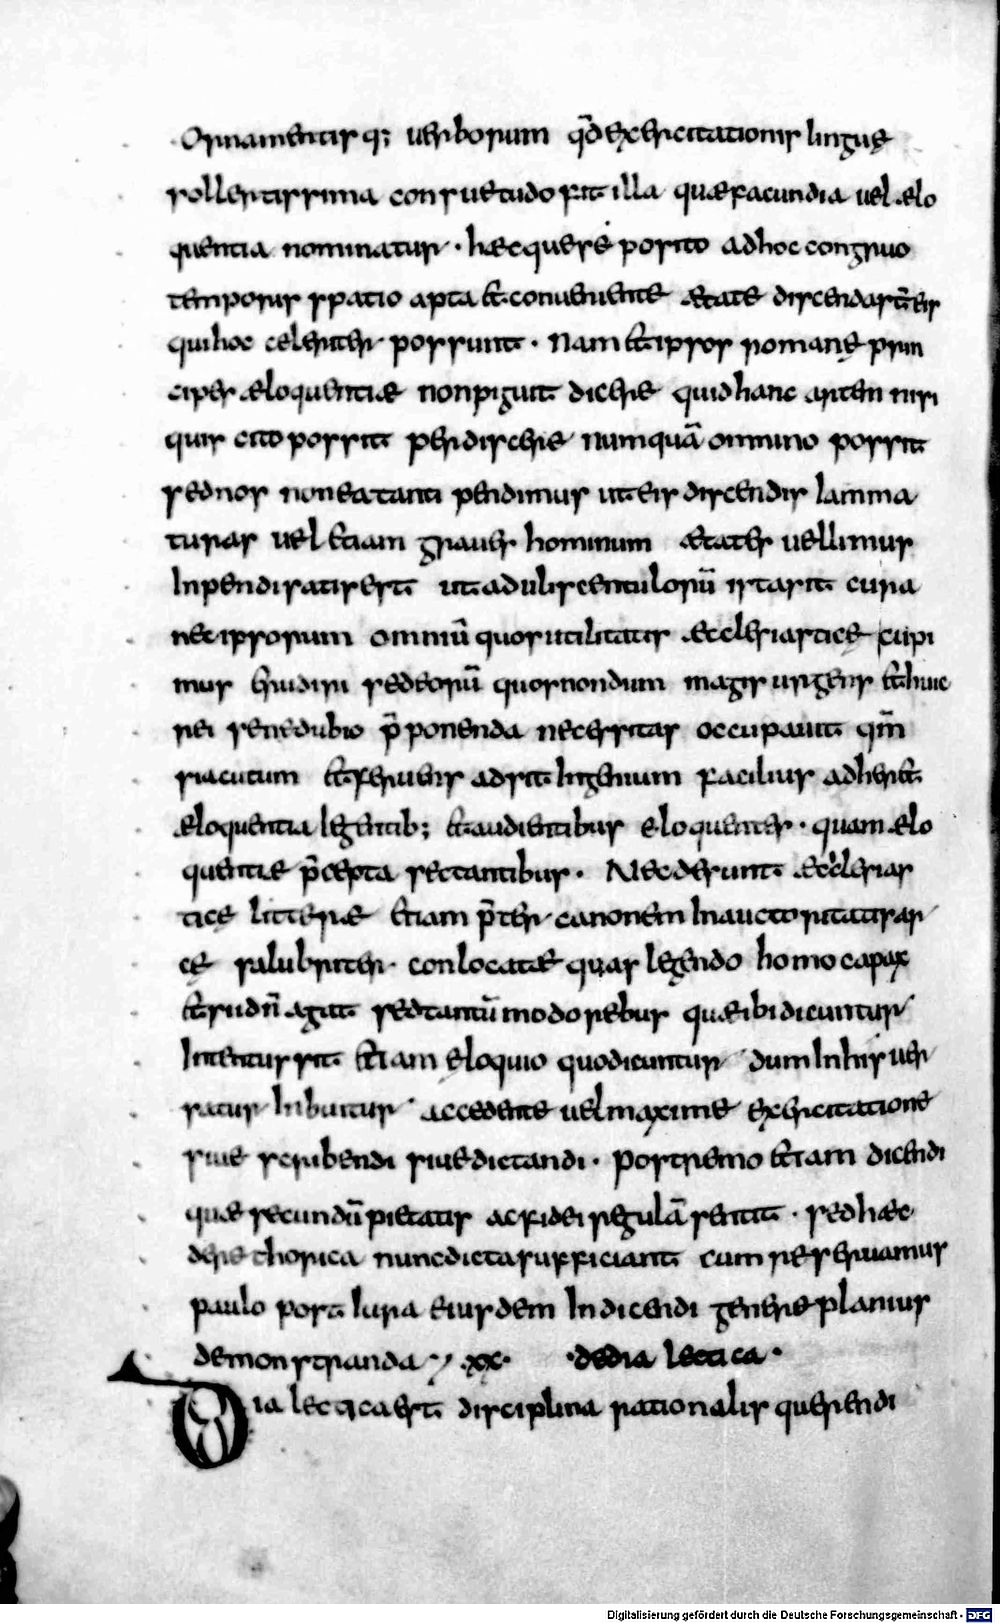 Ornamentisq; uerborum q̄d exercitationis linguę
sollertissima consuetudo fit illa quæ facundia uel ælo
quentia nominatur · hæc quere posito ad hoc congruo
temporis spatio apta &conueniente ætate discenda sūt eis
qui hoc celeriter possunt · Nam &ipsos romanę prin
cipes æloquentiæ non piguit dicere quid hanc artem nisi
quis cito possit perdiscere numquā omnino possit
sed nos non ea tanti pendimus ut eis discendis Iam ma
turas uel &iam graues hominum ætates uellimus
Inpendi satis est ut aduliscentulorū ista sit cura
nec ipsorum omniū quos utilitatis æcclesiasticę cupi
mus erudiri sed eorū quos nondum magis urgens &huic
rei sene dubio p̄ponenda necessitas occupauit qm̄
si acutum &feruens adsit Ingenium facilius adher&
æloquentia legentib; &audientibus eloquenter · quam ælo
quentiæ p̄cepta sectantibus · Nec desunt æcclesias
ticę litteræ &iam p̄ter canonem In auctoritatis ar
cę salubriter conlocatæ quas legendo homo capax
&si id n̄ agat sed tantū modo rebus quæ ibi dicuntur
Intentus sit &iam eloquio quo dicuntur dum In his uer
satur Inbuitur accedente uel maxime exercitatione
siue scribendi siue dictandi · postremo &iam dicendi
quæ secundū pietatis ac fidei regulā sentit · sed hæc
de rethorica nunc dicta sufficiant cum reseruamus
paulo post Iura eiusdem In dicendi genere planius
demonstranda · xx · · de dialectica ·
Dialectica est disciplina rationalis querendi
Digitalisierung gefördert durch die Deutsche Forschungsgemeinschaft · DFG